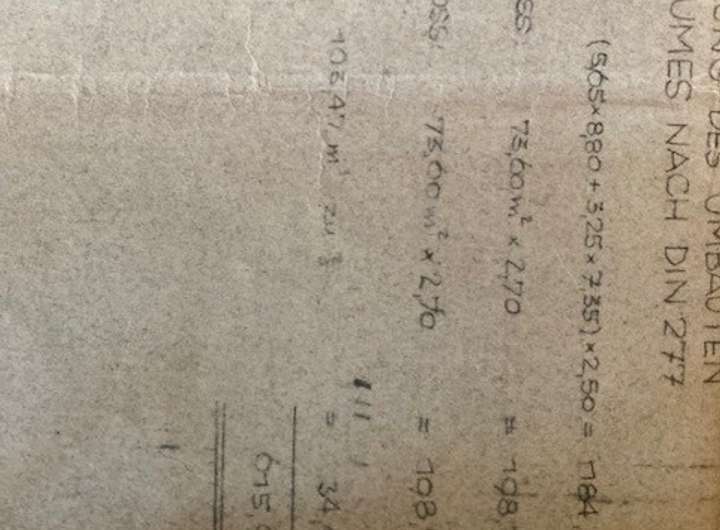 DES UMBAUTEN
UMES NACH DIN 277
(5,65×8,80+3,25×7,35)×2,50 = 184
SS. 73,60 m² × 2,70 = 198,
SS. 73,60 m² × 2,70 = 198,
103,47 m² zu ⅓ = 34,
615,